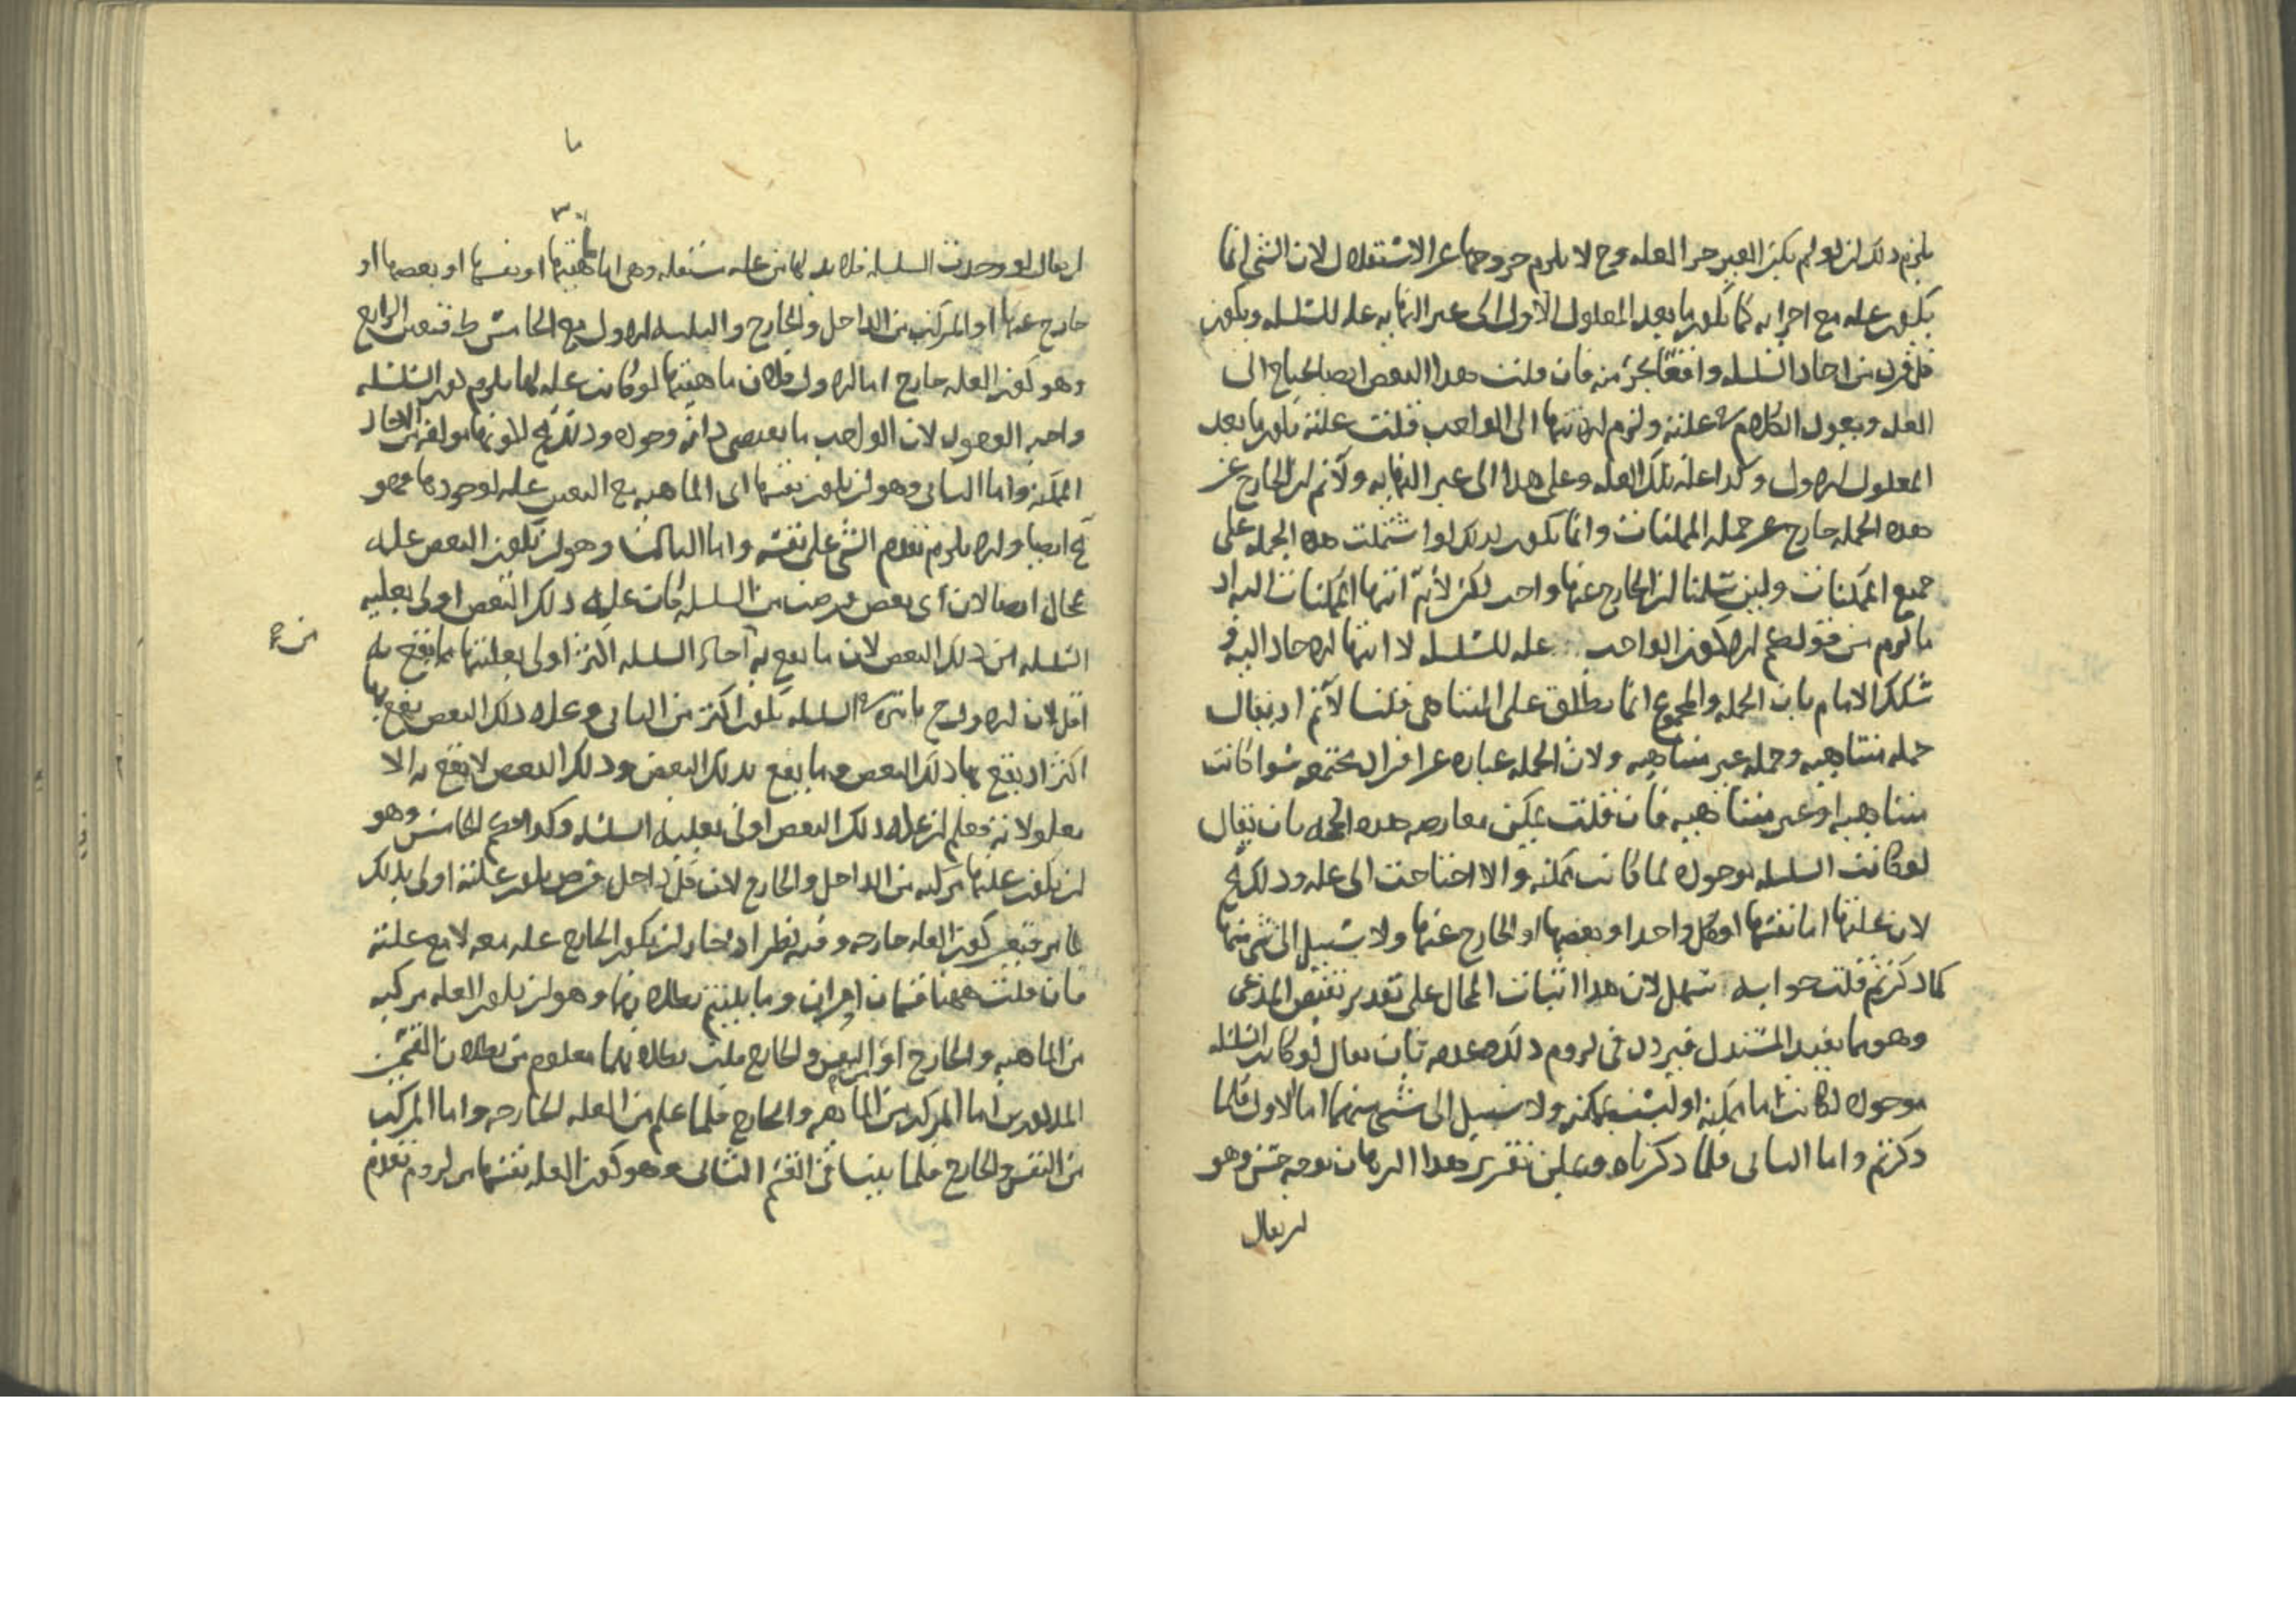 يلزم ذلك ان لو لم يكن الغير جزء العلة وح لا يلزم خروجها عن الاستقلال لان الشي انما
يكون علة مع اجزايه كما يكون ما بعد المعلول الاول الى غير النهاية علة للسلسلة ويكون
كل فرد من احاد السلسلة واقعا بجزء منه فان قلت هذا البعض ايضا يحتاج الى
العلة ويعود الكلام في علته ولزم الانتها الى الواجب قلت علته يكون ما بعد
المعلول الاول وكذا علة تلك العلة وعلى هذا الى غير النهاية ولا نم ان الخارج عن
هذه الجملة خارج عن جملة الممكنات وانما يكون كذلك لو اشتملت هذه الجملة على
جميع الممكنات ولين سلمنا ان الخارج عنها واجب لكن لا نم انتها الممكنات اليه اذ
ما لزم من قولكم الا كون الواجب علة للسلسلة لا انتها الاحاد اليه و
شكك الامام بان الجملة والمجموع انما يطلق على المتناهي قلنا لا نم اذ يقال
جملة متناهية وجملة غير متناهية ولان الجملة عبارة عن افراد مجتمعة سوا كانت
متناهية او غير متناهية فان قلت يمكن معارضة هذه الحجة بان يقال
لو كانت السلسلة موجودة لما كانت ممكنة والا احتاجت الى علة وذلك مح
لان علتها اما نفسها او كل واحد او بعضها او الخارج عنها ولا سبيل الى شي منها
كما ذكرتم قلت جوابه سهل لان هذا اثبات المحال على تقدير نقيض المدعى
وهو مما يفيد المستدل فيردد في لزوم ذلك وعدمه بان يقال لو كانت السلسلة
موجودة لكانت اما ممكنة او ليست بممكنة ولا سبيل الى شي منهما اما الاول فلما
ذكرتم واما الثاني فلما ذكرناه ويمكن تقرير هذا البرهان بوجه حسن وهو
ان يقال
ان يقال لو وجدت السلسلة فلا بد لها من علة مستقلة وهي اما ماهيتها او نفسها او بعضها او
خارج عنها او المركب من الداخل والخارج والثلاثة الاول مع الخامس ط فتعين الرابع
وهو كون العلة خارج اما الاول فلان ماهيتها لو كانت علة لها يلزم كون السلسلة
واجب الوجود لان الواجب ما يقتضي ذاته وجوده وذلك مح لكونها مولفة من الاحاد
الممكنة واما الثاني وهو ان يكون نفسها اي الماهية مع التعين علة لوجودها فهو
مح ايضا والا يلزم تقدم الشي على نفسه واما الثالث وهو ان يكون البعض علة
محال ايضا لان اي بعض فرضت من السلسلة كان علة ذلك البعض اولى بعلية
السلسلة من ذلك البعض لان ما يقع به آحاد السلسلة اكثر اولى بعليتها مما يقع به
اقل لان الاول ح ما ثيره في السلسلة يكون اكثر من الثاني وعلة ذلك البعض يقع بها
اكثر اذ يقع بها ذلك البعض وما يقع بذلك البعض وذلك البعض لا يقع به الا
معلولاته فعلم ان علة ذلك البعض اولى بعلية السلسلة وكذا القسم الخامس وهو
ان يكون علتها مركبة من الداخل والخارج لان كل داخل فرض يكون علته اولى بذلك
لما مر فتعين كون العلة خارجه وفيه نظر اذ نختار ان يكون الخارج علة معه لا مع علته
فان قلت ههنا قسمان اخران وما بينتم بطلانهما وهو ان يكون العلة مركبة
من الماهية والخارج او النفس والخارج قلت بطلانهما معلوم من بطلان القسمين
المذكورين اما المركب من الماهية والخارج فلما علم من العلة الخارجه واما المركب
من النفس والخارج فلما بينا في القسم الثاني وهو كون العلة نفسها من لزوم تقدم